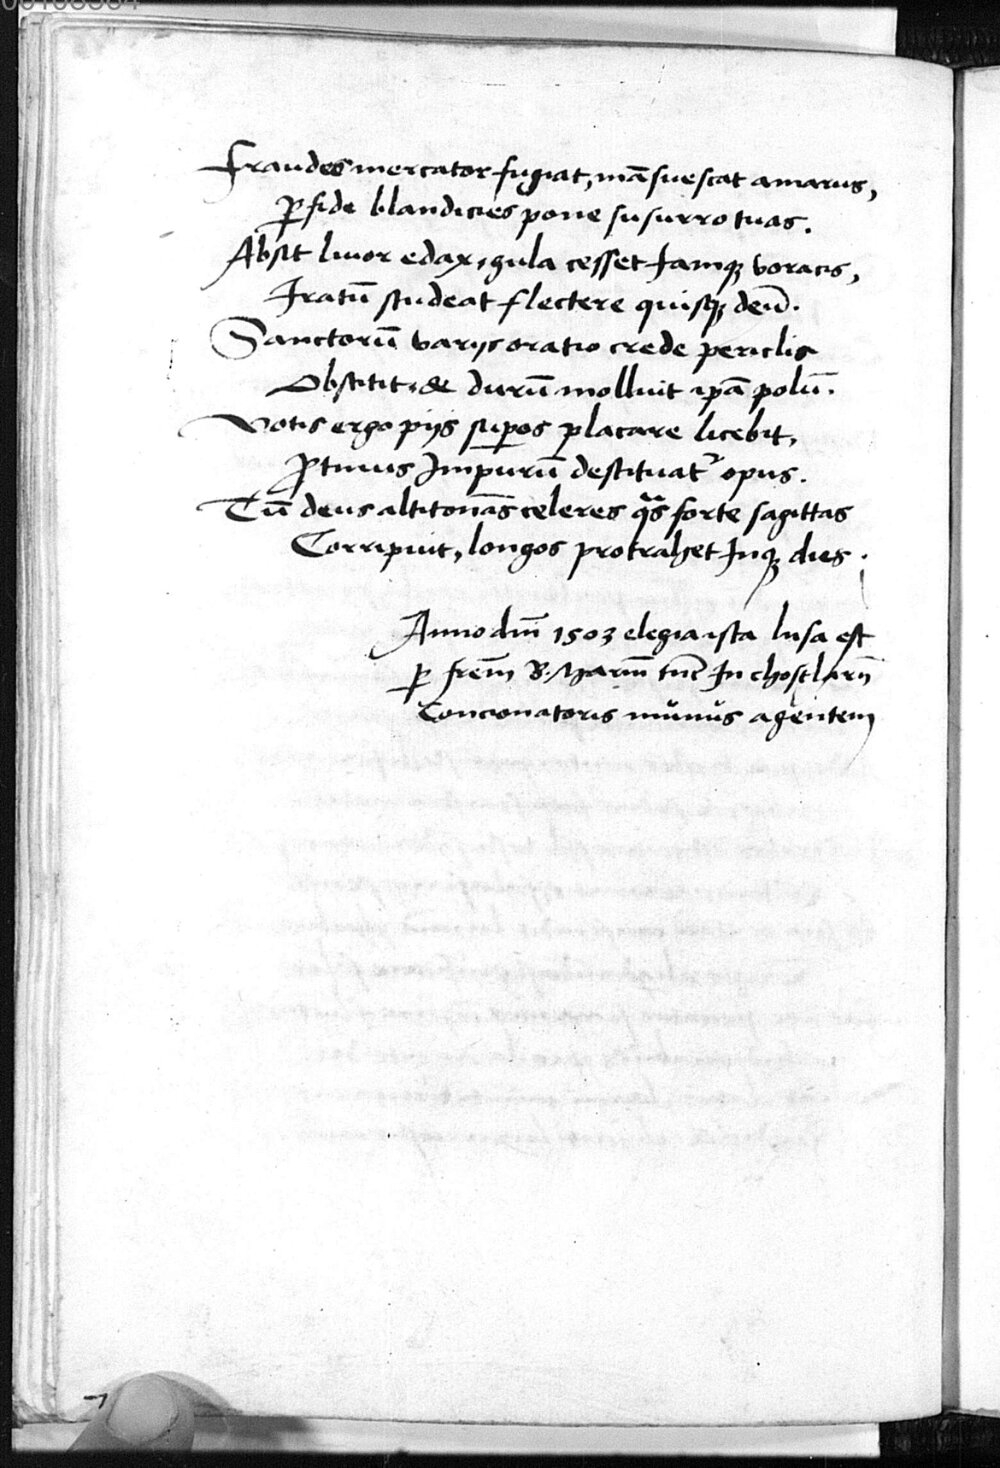 Fraudes mercator fugiat, mãsuescat amarus,
ꝑfide blandicies pone susurro tuas.
Absit livor edax, gula cesset Iamqꝫ voracis,
Iratũ studeat flectere quisqꝫ deũ.
Sanctorũ varijs oratio crede periclis
Obstitit, & durũ molliuit ipã polũ.
Votis ergo pijs suꝑos placare licebit,
ꝓtinus Impurũ destituat᷑ opus.
Tũ deus altitonãs celeres q̃s forte sagittas
Corripuit, longos protrahet Inqꝫ dies.
Anno dñi 1503 elegia ista lusa est
ꝑ frem̃ B. tũc In
Concionatoris munus agentem